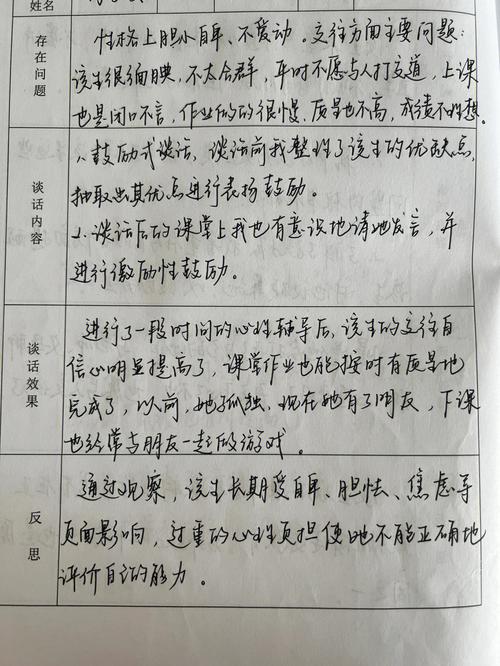 姓名
存在问题
性格上胆小自卑、不爱动。交往方面主要问题：
该生很缅腆，不太会群，平时不愿与人打交道，上课
也是闭口不言，作业做的很慢，质量也不高，成绩不理想。
谈话内容
1、鼓励式谈话，谈话前我整理了该生的优缺点，
抽取出其优点进行表扬鼓励。
2、谈话后的课堂上我也有意识地请她发言，并
进行激励性鼓励。
谈话效果
进行了一段时间的心性辅导后，该生的交往自
信心明显提高了，课堂作业也能按时有质量地
完成了，以前，她孤独，现在她有了朋友，下课
也经常与朋友一起做游戏。
反思
通过观察，该生长期受自卑、胆怯、焦虑等
负面影响，过重的心性负担使她不能正确地
评价自己的能力。